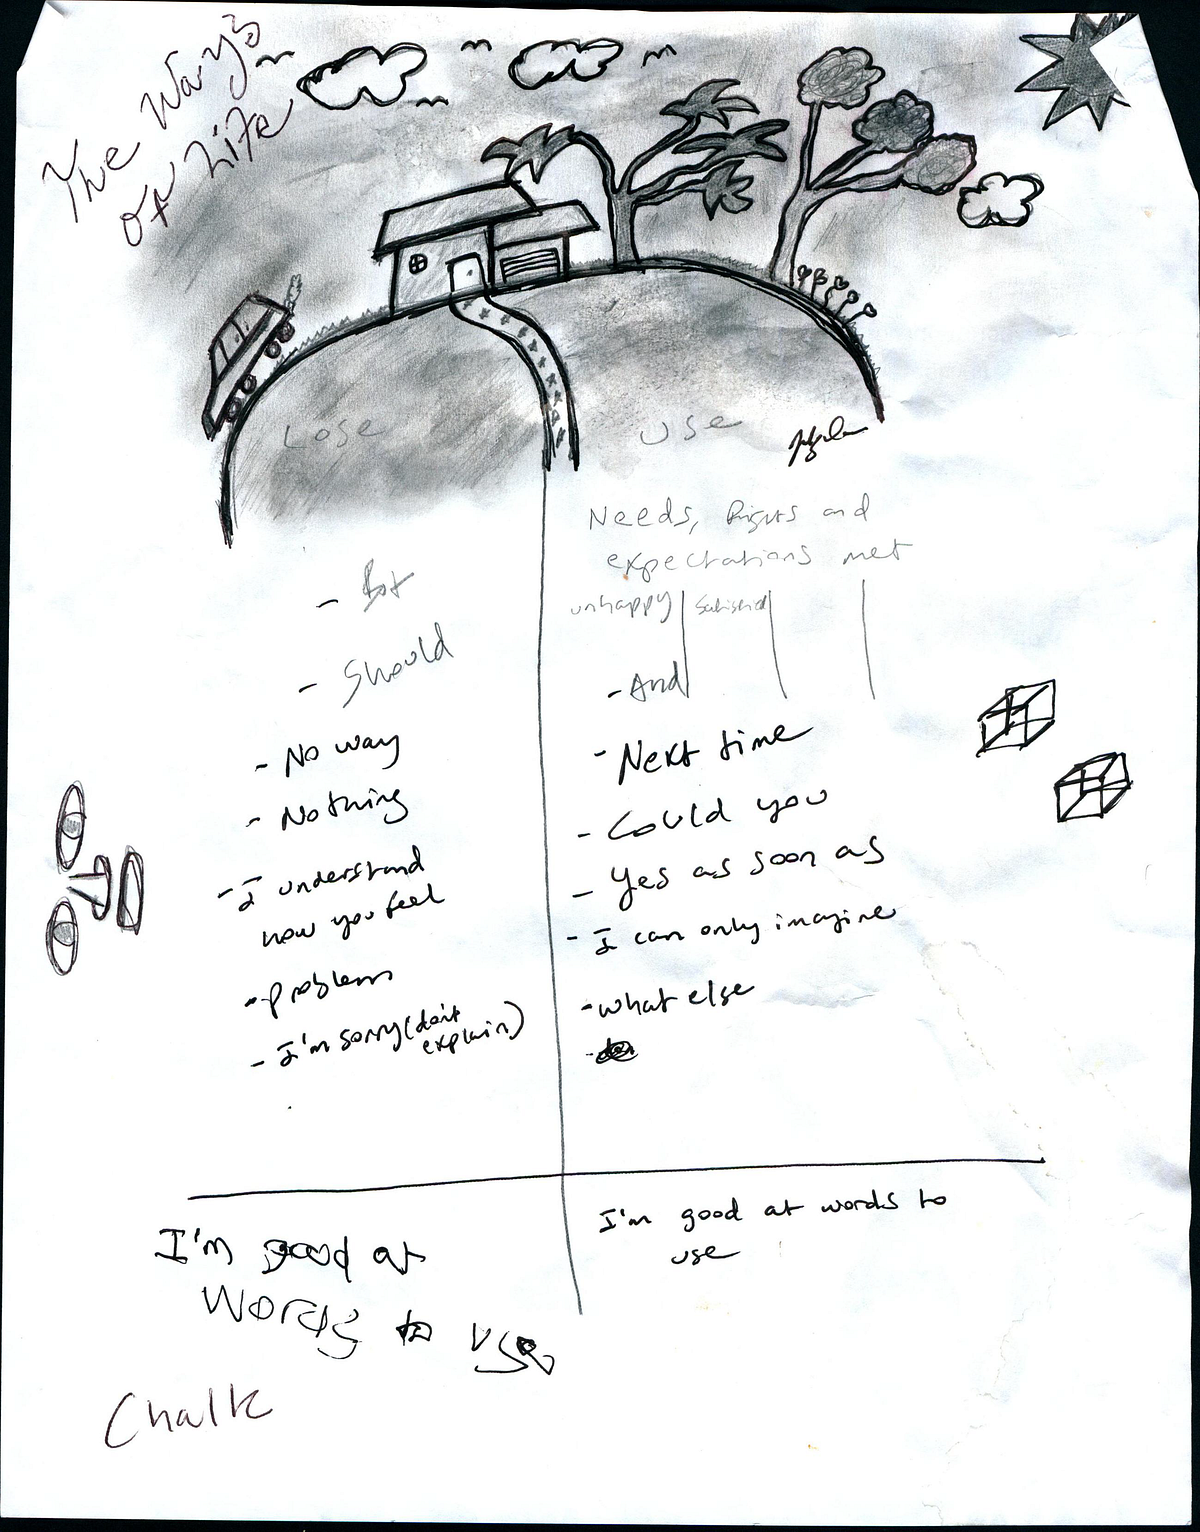 The Ways
of Life
Lose
Use
Needs, Rights and
expectations met
unhappy
Satisfied
- But
- Should
- No way
- Nothing
- I understand
how you feel
- problem
- I'm sorry (don't
explain)
- And
- Next time
- Could you
- Yes as soon as
- I can only imagine
- what else
I'm good at
Words to use
I'm good at words to
use
Chalk